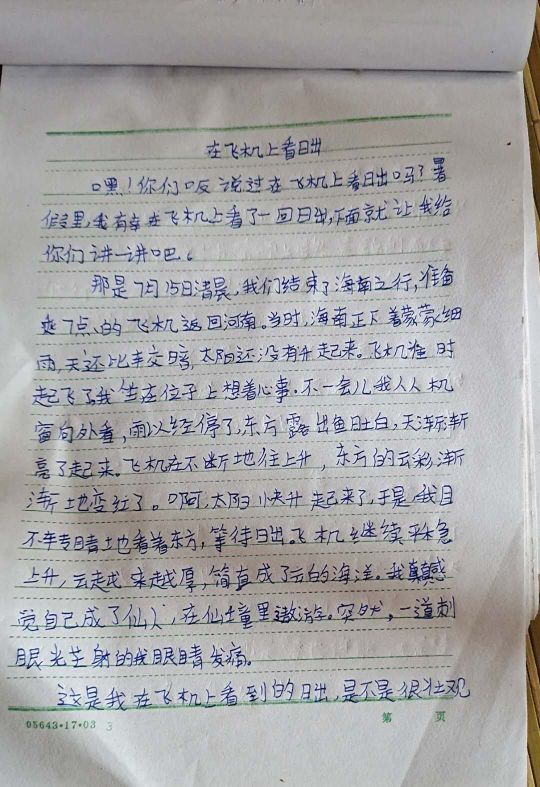 在飞机上看日出
嘿！你们听说过在飞机上看日出吗？暑
假里，我有幸在飞机上看了一回日出，下面就让我给
你们讲一讲吧。
那是7月15日清晨，我们结束了海南之行，准备
乘7点的飞机返回河南。当时，海南正下着蒙蒙细
雨，天还比较暗，太阳还没有升起来。飞机准时
起飞了，我坐在位子上想着心事。不一会儿我从机
窗向外看，雨以经停了，东方露出鱼肚白，天渐渐
亮了起来。飞机在不断地往上升，东方的云彩渐
渐地变红了。啊，太阳快升起来了，于是，我目
不转睛地看着东方，等待日出。飞机继续平稳
上升，云越来越厚，简直成了云的海洋。我真感
觉自己成了仙人，在仙境里遨游。突然，一道刺
眼光芒射的我眼睛发痛。
这是我在飞机上看到的日出，是不是很壮观
05643·17·03 3
第 页